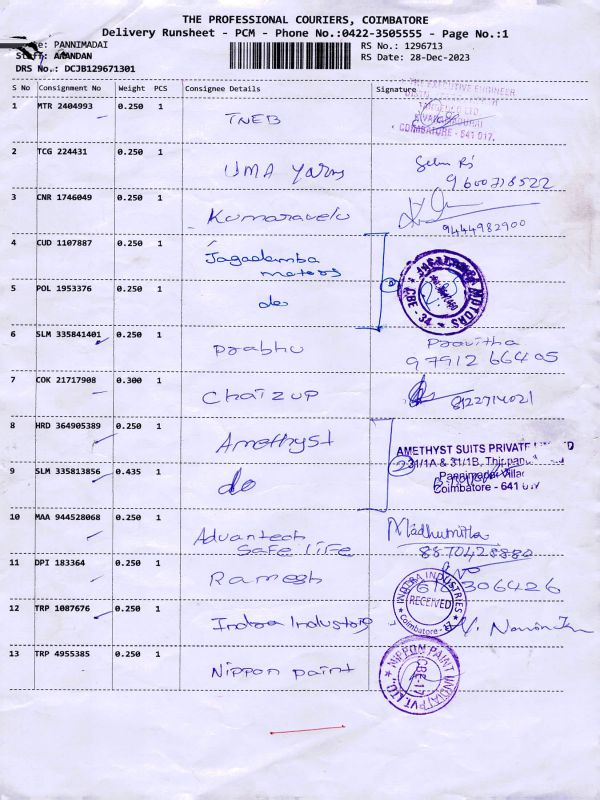 THE PROFESSIONAL COURIERS, COIMBATORE
Delivery Runsheet - PCM - Phone No.:0422-3505555 - Page No.:1
PANNIMADAI
RS No.: 1296713
ANANDAN
RS Date: 28-Dec-2023
DRS No.: DCJB129671301
S No Consignment No Weight PCS Consignee Details Signature
1 MTR 2404993 0.250 1 TNEB
EXECUTIVE ENGINEER
TANGEDCO LTD
COIMBATORE - 641 017.
2 TCG 224431 0.250 1 UMA Yarns
9600718522
3 CNR 1746049 0.250 1 Kumaravelu
9444982900
4 CUD 1107887 0.250 1 Jagadamba
motors
MOTORS
CBE - 34
5 POL 1953376 0.250 1 do
6 SLM 335841401 0.250 1 Prabhu
Pravitha
97912 66405
7 COK 21717908 0.300 1 Chaizup
8122714021
8 HRD 364905389 0.250 1 Amethyst
AMETHYST SUITS PRIVATE
231/1A & 31/1B,
Pannimadai
Coimbatore - 641
9 SLM 335813856 0.435 1 do
10 MAA 944528068 0.250 1 Advantech
Safe life
Madhumitha
8870428880
11 DPI 183364 0.250 1 Ramesh
306426
12 TRP 1087676 0.250 1 Indra Industries
INDRA INDUSTRIES
RECEIVED
Coimbatore
13 TRP 4955385 0.250 1 Nippon paint
NIPPON PAINT (INDIA) PVT. LTD.
CBE-17